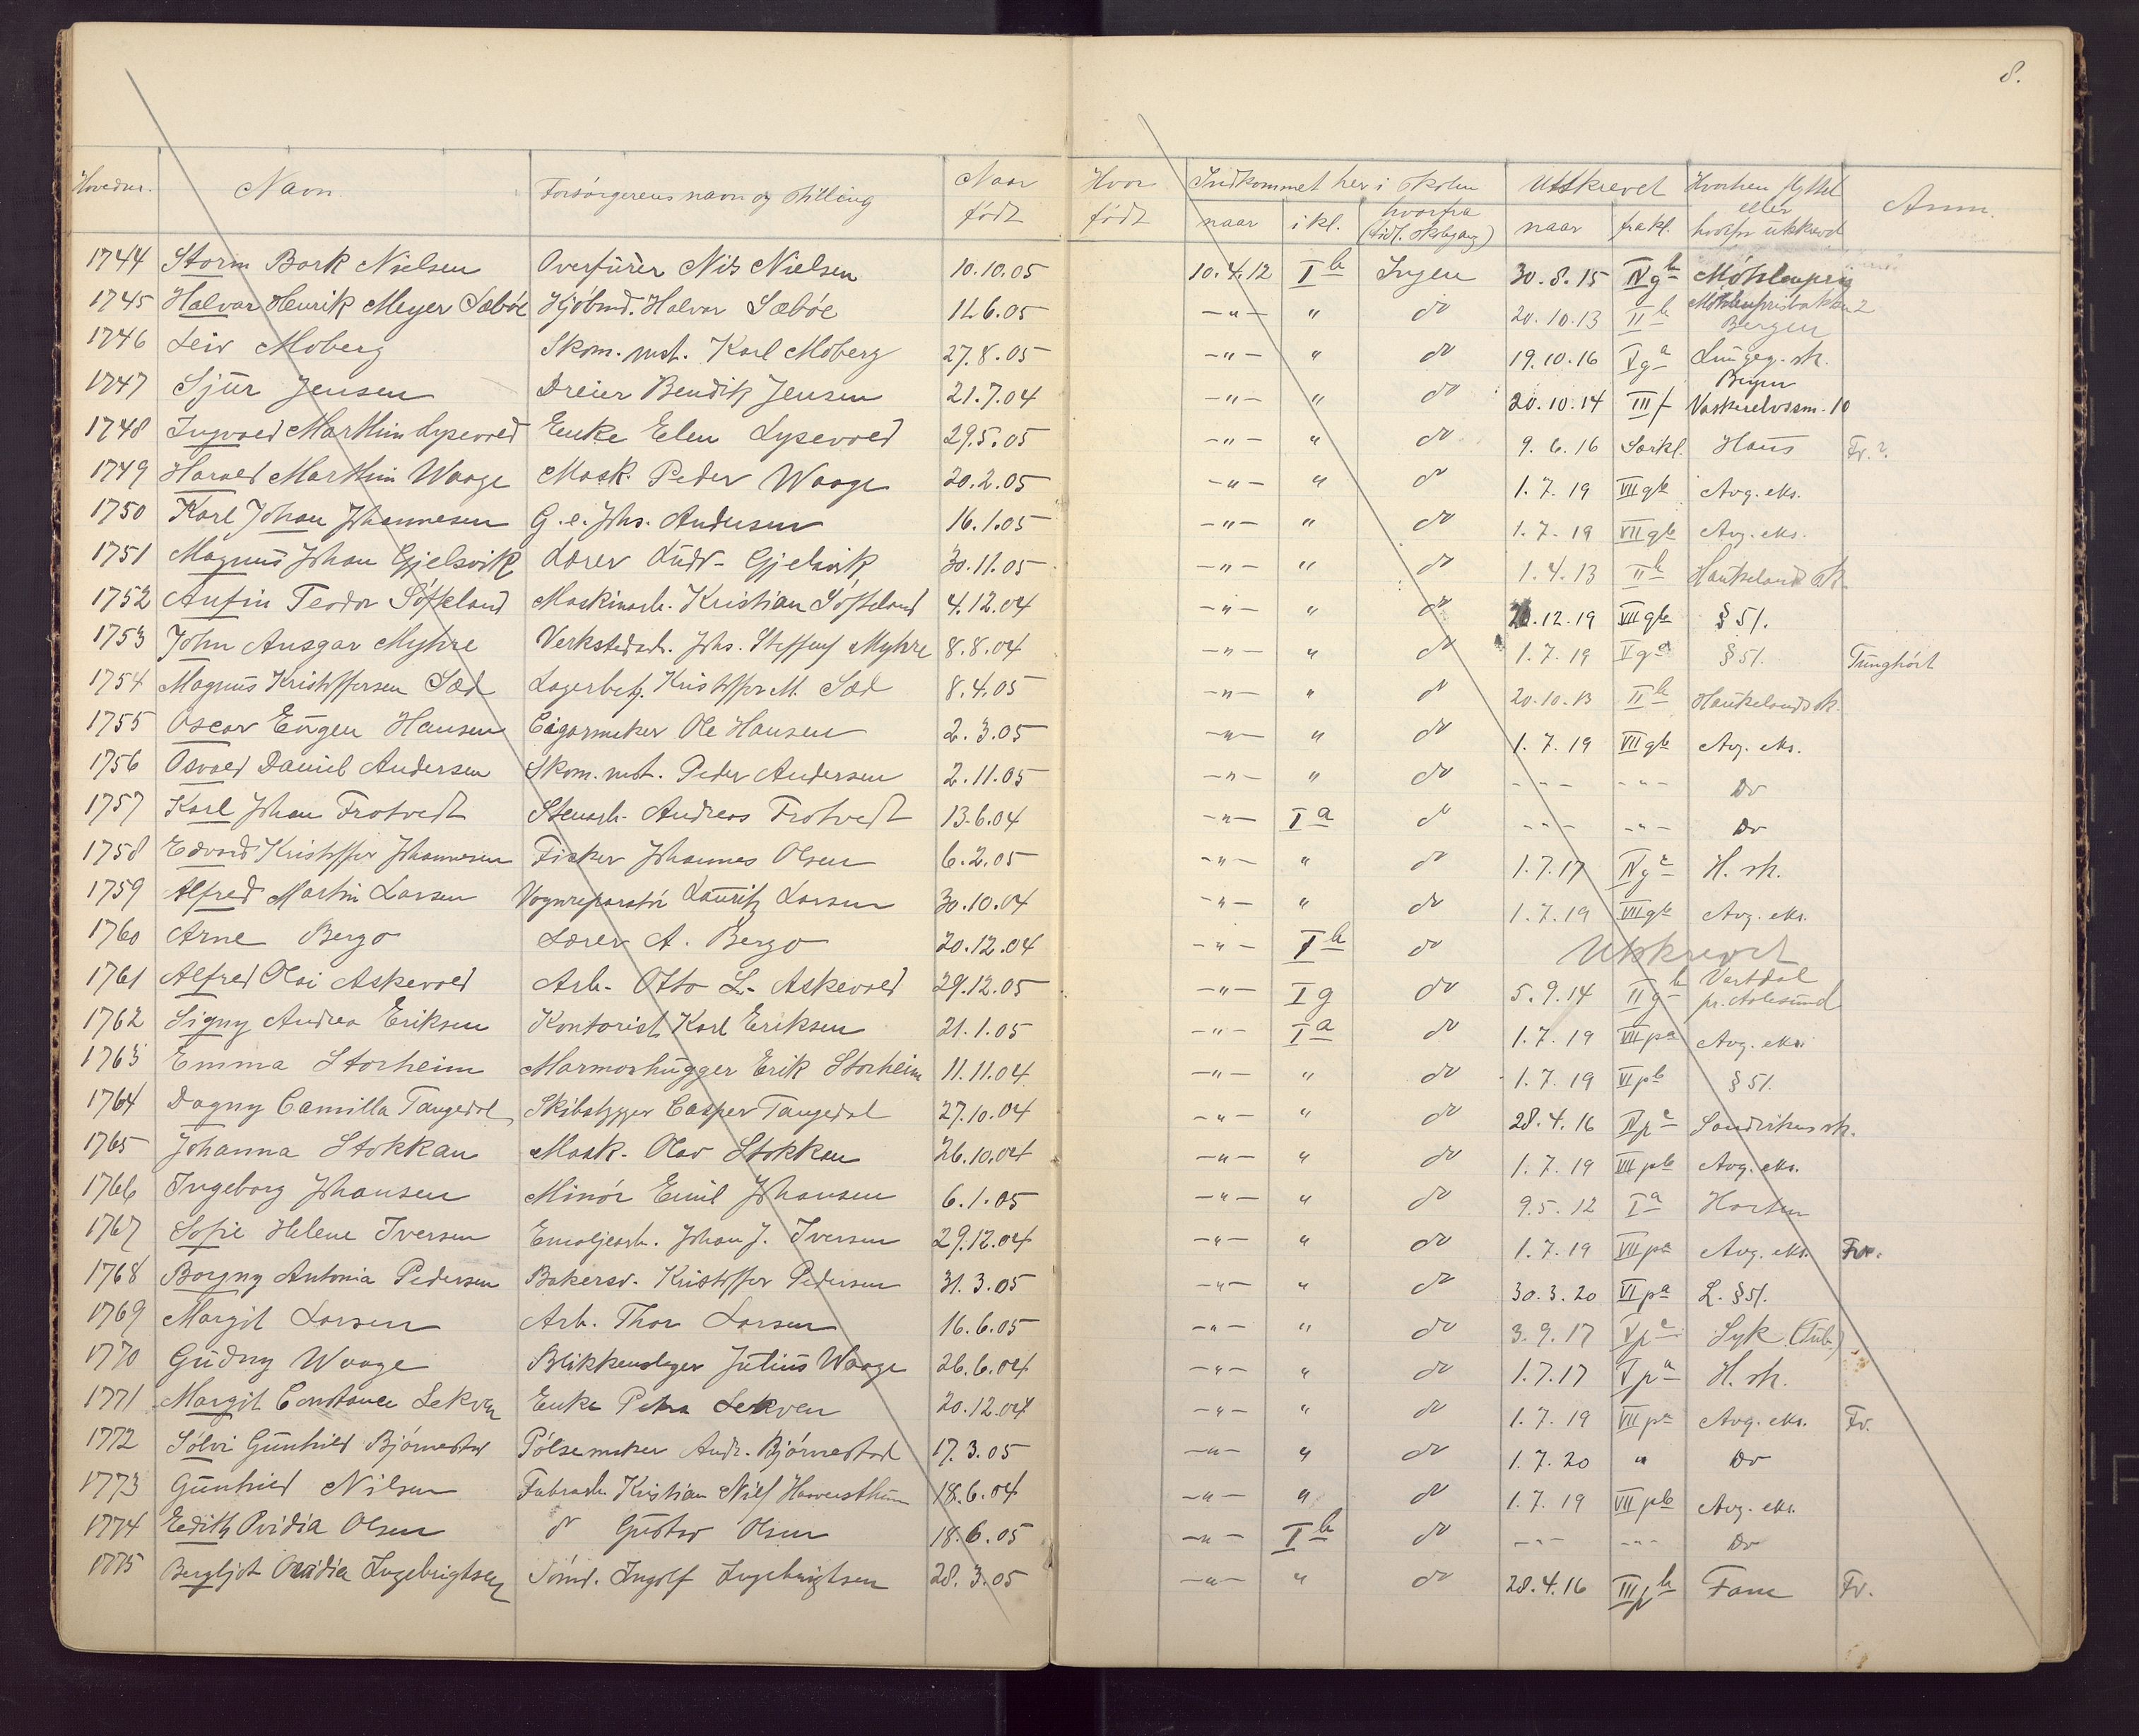 8.
Hovednr. Navn. Forsörgerens navn og stilling Naar født Hvor født Indkommet her i skolen naar i kl. hvorfra (tidl. skolegang) Utskrevet naar fra kl. Hvorhen flyttet eller hvorfor utskrevet Anm.
1744 Storm Bork Nielsen Overfürer Nils Nielsen 10.10.05 10.4.12 I b Ingen 30.8.15 IV g b Möhlenpris
1745 Halvar Henrik Meyer Sæböe Kjöbmd. Halvor Sæböe 11.6.05 —"— " do 20.10.13 II b Möhlenprisbakken 2 Bergen
1746 Leiv Moberg Skom. mst. Karl Moberg 27.8.05 —"— " do 19.10.16 V g a Lungeg. sk. Bergen
1747 Sjür Jensen Dreier Bendik Jensen 21.7.04 —"— " do 20.10.14 III f Vaskerelvssm. 10
1748 Ingvald Marthin Lysevold Enke Elen Lysevold 29.5.05 —"— " do 9.6.16 Særkl. Haus Fr.?
1749 Harald Marthin Waage Mask. Peder Waage 20.2.05 —"— " do 1.7.19 VII g b Avg. eks.
1750 Karl Johan Johannesen G.e. Johs. Andersen 16.1.05 —"— " do 1.7.19 VII g b Avg. eks.
1751 Magnus Johan Gjelsvik Lærer Ludv. Gjelsvik 30.11.05 —"— " do 1.4.13 II b Haukeland sk.
1752 Anfin Teodor Söfteland Maskinarb. Kristian Söfteland 4.12.04 —"— " do 20.12.19 VII g b § 51.
1753 John Ansgar Myhre Verkstedarb. Johs. Steffens Myhre 8.8.04 —"— " do 1.7.19 V g a § 51. Tunghört
1754 Magnus Kristoffersen Sæd Lagerbetj. Kristoffer M. Sæd 8.4.05 —"— " do 20.10.13 II b Haukelands sk.
1755 Oscar Eugen Hansen Cigarmaker Ole Hansen 2.3.05 —"— " do 1.7.19 VII g b Avg. eks.
1756 Osvald Daniel Andersen Skom. mst. Peder Andersen 2.11.05 —"— " do - - - - " - Do
1757 Karl Johan Trotvedt Stenarb. Andreas Trotvedt 13.6.04 —"— I a do - - - - " - Do
1758 Edvard Kristoffer Johannesen Fisker Johannes Olsen 6.2.05 —"— " do 1.7.17 IV g a H. sk.
1759 Alfred Martin Larsen Vognreparatör Lauritz Larsen 30.10.04 —"— " do 1.7.19 VII g b Avg. eks.
1760 Arne Bergo Lærer A. Bergo 20.12.04 —"— I b do Utskrevet
1761 Alfred Olai Askevold Arb. Otto L. Askevold 29.12.05 —"— I g do 5.9.14 II g b Vartdal pr. Aalesund
1762 Signy Andrea Eriksen Kontorist Karl Eriksen 21.1.05 —"— I a do 1.7.19 VII p a Avg. eks.
1763 Emma Storheim Marmorhugger Erik Storheim 11.11.04 —"— " do 1.7.19 VI p b § 51.
1764 Dagny Camilla Tangedal Skibsbygger Casper Tangedal 27.10.04 —"— " do 28.4.16 IV p a Sandvikens sk.
1765 Johanna Stokkan Mask. Olav Stokkan 26.10.04 —"— " do 1.7.19 VII p b Avg. eks.
1766 Ingeborg Johansen Minör Emil Johansen 6.1.05 —"— " do 9.5.12 I a Horten
1767 Sofie Helene Iversen Emaljearb. Johan J. Iversen 29.12.04 —"— " do 1.7.19 VII p a Avg. eks. Fr.
1768 Borgny Antonia Pedersen Bakersv. Kristoffer Pedersen 31.3.05 —"— " do 30.3.20 VI p a L. § 51.
1769 Margit Larsen Arb. Thor Larsen 16.6.05 —"— " do 3.9.17 V p a Syk (Tub.)
1770 Gudny Waage Blikkenslager Julius Waage 26.6.04 —"— " do 1.7.17 V p a H. sk.
1771 Margit Constance Lekven Enke Petra Lekven 20.12.04 —"— " do 1.7.19 VII p a Avg. eks. Fr.
1772 Sölvi Gunhild Björnestad Pölsemaker Andr. Björnestad 17.3.05 —"— " do 1.7.20 " Do
1773 Gunhild Nilsen Fabrarb. Kristian Nils 18.6.04 —"— " do 1.7.19 VII p b Avg. eks.
1774 Edith Ovidia Olsen do Gustav Olsen 18.6.05 —"— I b do - - - - - - Do
1775 Bergljot Ovidia Ingebrigtsen Sömd. Ingolf Ingebrigtsen 28.3.05 —"— " do 28.4.16 III p b Fane Fr.